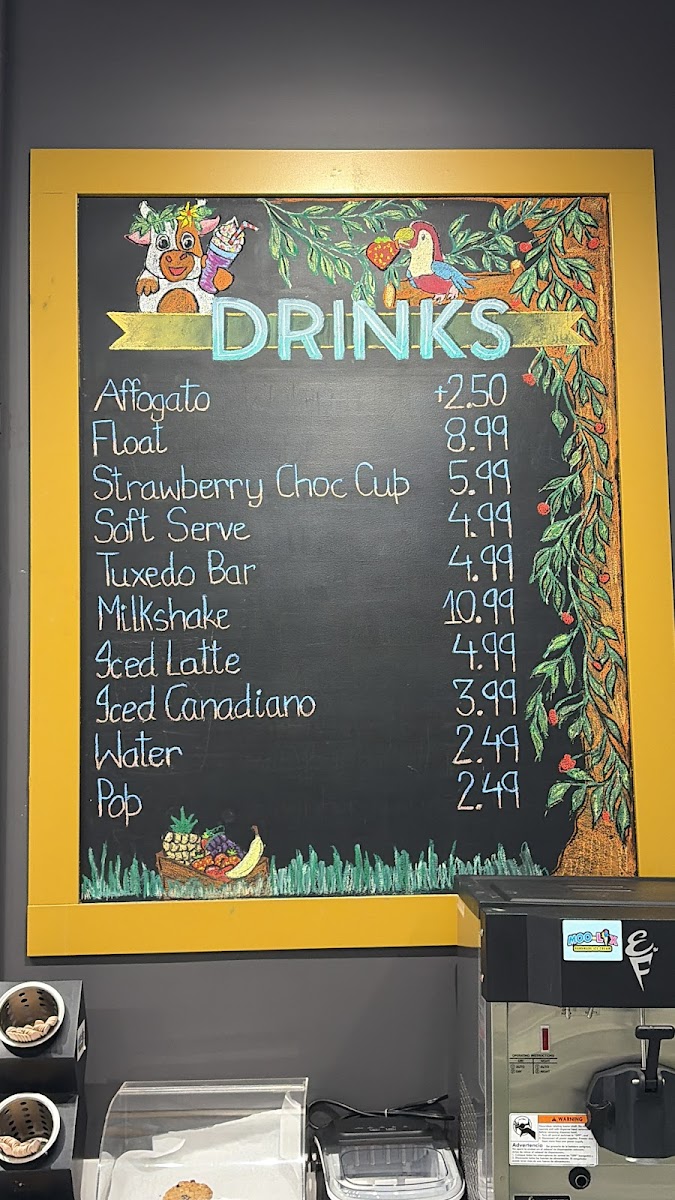 DRINKS
Affogato +2.50
Float 8.99
Strawberry Choc Cup 5.99
Soft Serve 4.99
Tuxedo Bar 4.99
Milkshake 10.99
Iced Latte 4.99
Iced Canadiano 3.99
Water 2.49
Pop 2.49
MOO-LIX
EF
OPERATING INSTRUCTIONS
WARNING
Advertencia